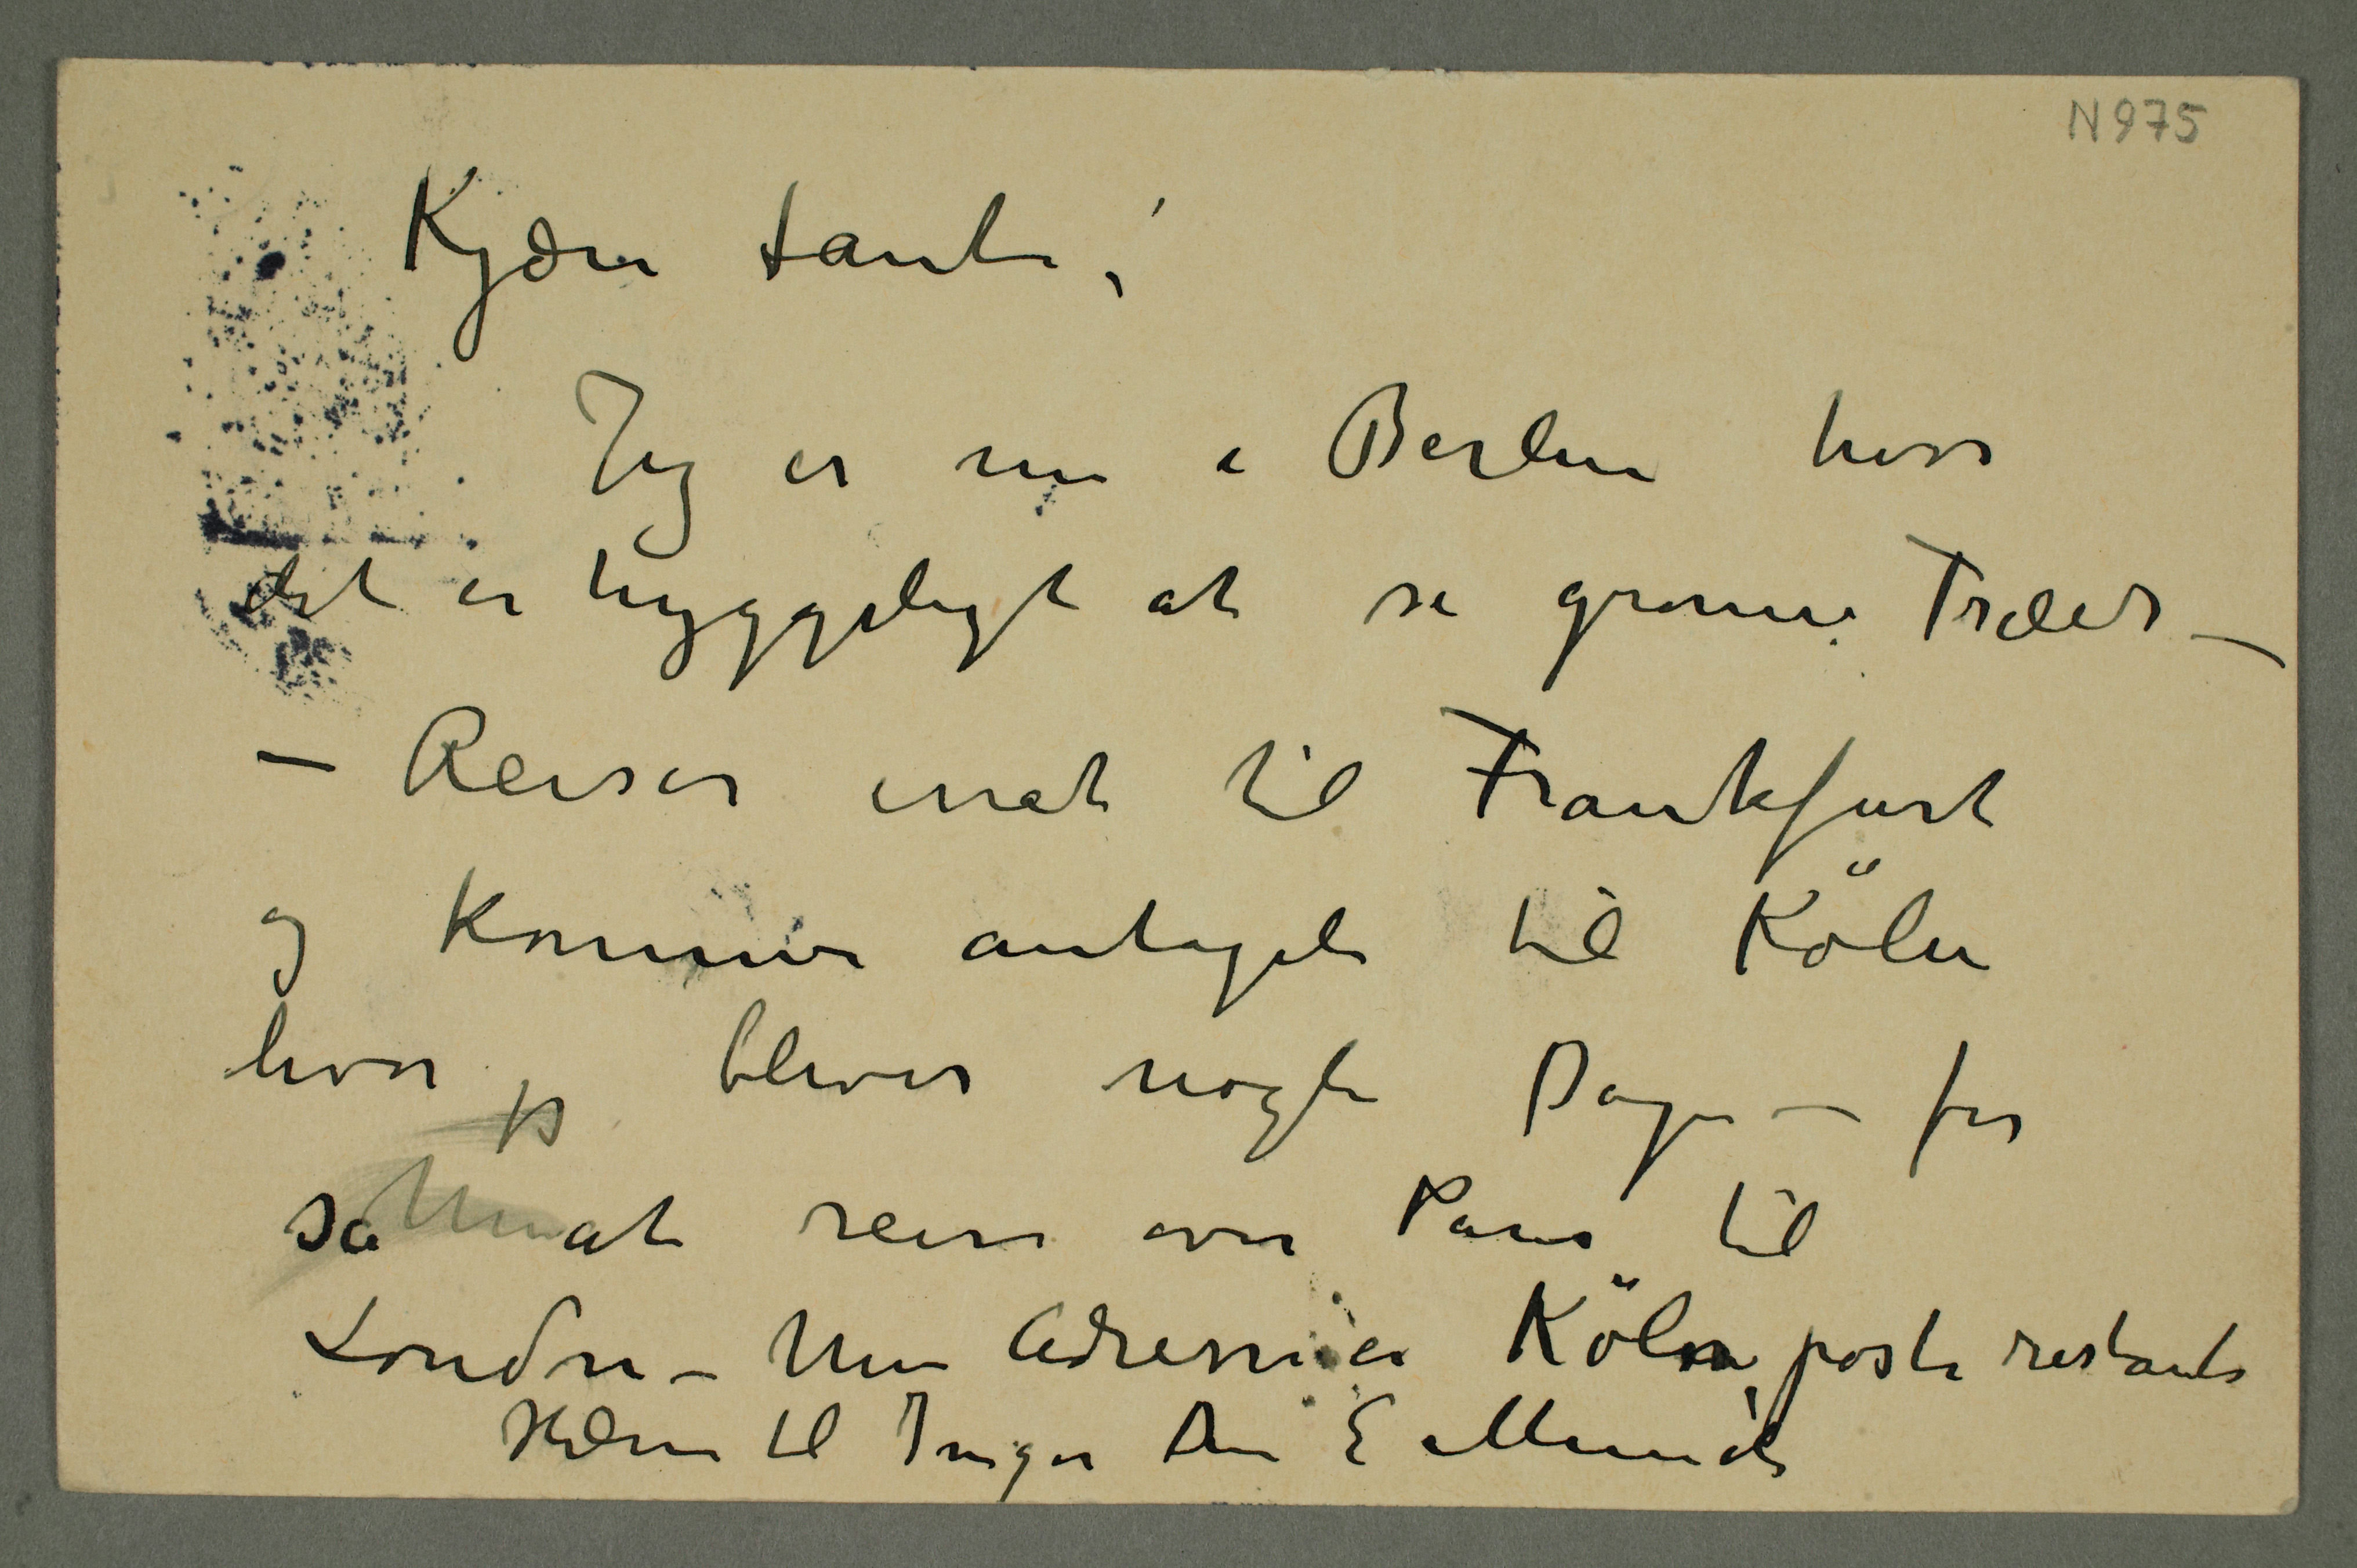 N 975
Kjære tante!
Jeg er nu i Berlin hvor
det er hyggeligt at se grønne Træer –
– Reiser inat til Frankfurt
og kommer antagelig til Köln
hvor jeg bliver nogle Dage – for
så at reise over Paris til
London – Min Adresse er Köln, poste restante
Hilsen til Inger Din E Munch